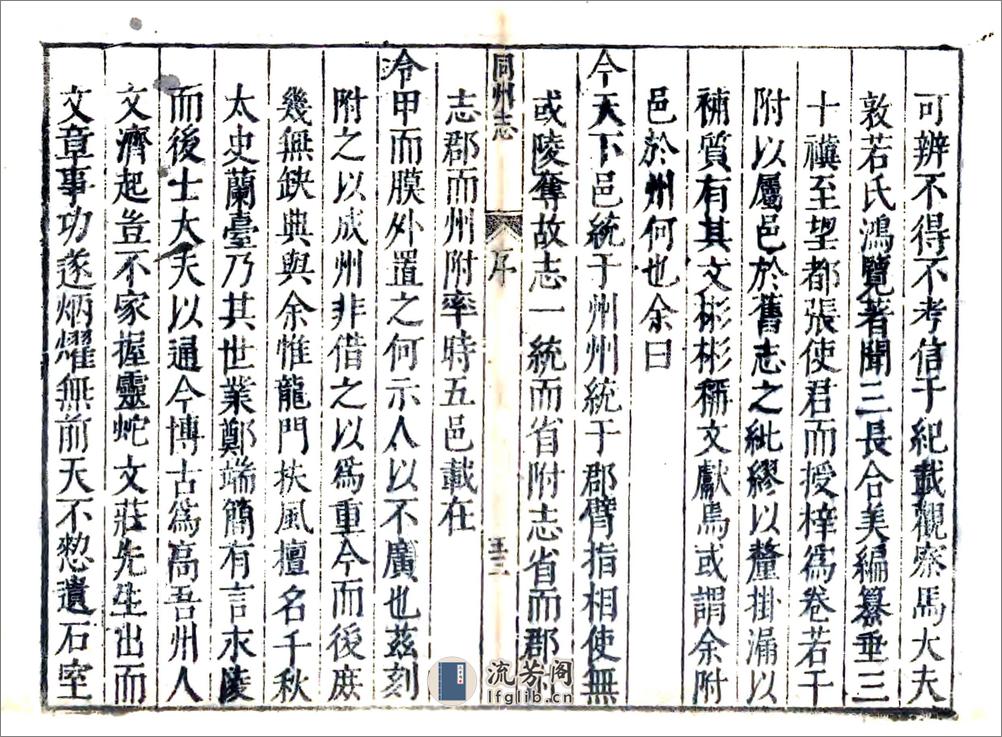 可辨不得不考信于紀載觀察馬大夫
敦若氏鴻覽著聞三長合美編纂垂三
十禩至望都張使君而授梓爲卷若干
附以屬邑於舊志之紕繆以釐掛漏以
補質有其文彬彬稱文獻焉或謂余附
邑於州何也余曰
今天下邑統于州州統于郡臂指相使無
或陵奪故志一統而省附志省而郡
志郡而州附率時五邑載在
同州志
序
令甲而膜外置之何示人以不廣也茲刻
附之以成州非借之以爲重今而後庶
幾無缺典與余惟龍門扶風擅名千秋
太史蘭臺乃其世業鄭端簡有言末陵
而後士大夫以通今博古爲高吾州人
文濟起豈不家握靈蛇文莊先生出而
文章事功遂炳燿無前天不憖遺石室
流芳阁
lfglib.cn